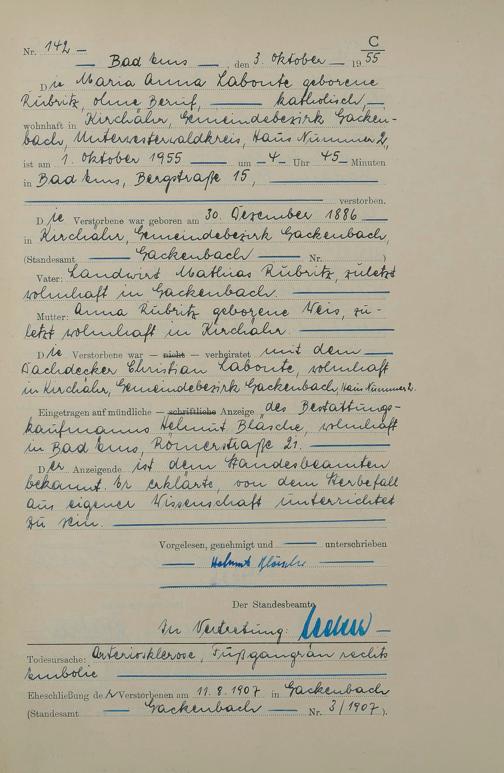 C
Nr. 142 —
— Bad Ems —, den 3. Oktober — 1955
Die Maria Anna Labonte geborene
Rübritz, ohne Beruf, — katholisch, —
wohnhaft in Kirchähr, Gemeindebezirk Gacken-
bach, Unterwesterwaldkreis, Haus Nummer 2,
ist am 1. Oktober 1955 — um — 4 — Uhr 45 — Minuten
in Bad Ems, Bergstraße 15, —
— verstorben.
Die Verstorbene war geboren am 30. Dezember 1886 —
in Kirchähr, Gemeindebezirk Gackenbach,
(Standesamt — Gackenbach — Nr. — )
Vater: Landwirt Mathias Rübritz, zuletzt
wohnhaft in Gackenbach. —
Mutter: Anna Rübritz geborene Weis, zu-
letzt wohnhaft in Kirchähr. —
Die Verstorbene war — nicht — verheiratet mit dem —
Dachdecker Christian Labonte, wohnhaft
in Kirchähr, Gemeindebezirk Gackenbach, Haus Nummer 2.
Eingetragen auf mündliche — schriftliche Anzeige des Bestattungs-
kaufmanns Helmut Bläsche, wohnhaft
in Bad Ems, Römerstraße 21. —
Der Anzeigende ist dem Standesbeamten
bekannt. Er erklärte, von dem Sterbefall
aus eigener Wissenschaft unterrichtet
zu sein. —
Vorgelesen, genehmigt und — unterschrieben
— Helmut Bläsche —
Der Standesbeamte
In Vertretung: —
Todesursache: Arteriosklerose, Fußgangrän rechts
Embolie —
Eheschließung der Verstorbenen am 11.8.1907 in Gackenbach
(Standesamt — Gackenbach — Nr. 3/1907).